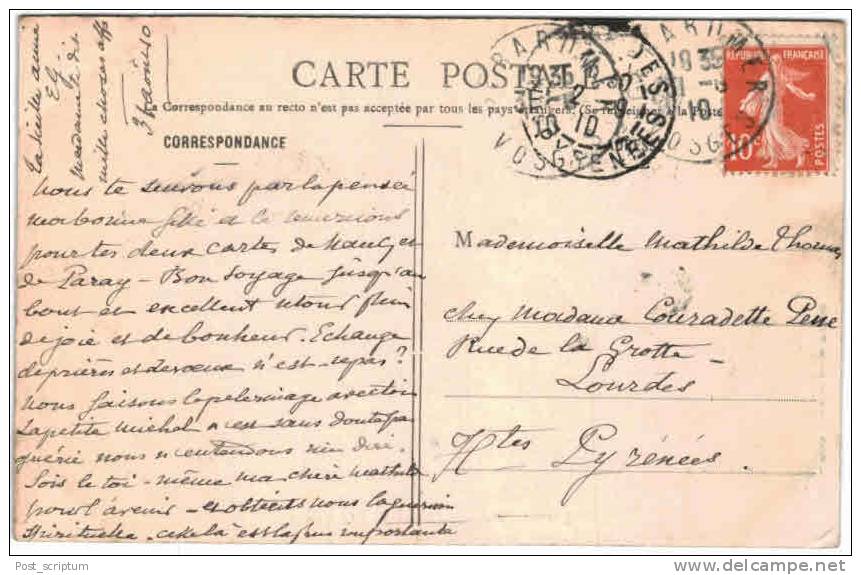 CARTE POSTALE
Correspondance au recto n'est pas acceptée par tous les pays étrangers. (Se renseigner à la Poste
CORRESPONDANCE
RÉPUBLIQUE FRANÇAISE
10c
POSTES
BARUMER
19 35
10
VOSGES
31 août 10
mille choses aff
Nous te suivons par la pensée
ma bonne fille et te remercions
pour tes deux cartes de
de Paray - Bon voyage jusqu'au
bout et excellent retour plein
de joie et de bonheur. Echange
de prières et de vœux n'est-ce pas?
Nous faisons le pelerinage avec toi
La petite Michel n'est sans doute pas
guérie nous n'entendons rien dire.
Sois le toi-même ma chère Mathilde
pour l'avenir - et obtiens nous la guérison
Spirituelle. celle là est la plus importante
Mademoiselle Mathilde Thomas
chez Madame Couradette Pene
Rue de la Grotte -
Lourdes
Htes Pyrénées.
Post_scriptum
delcampe.net